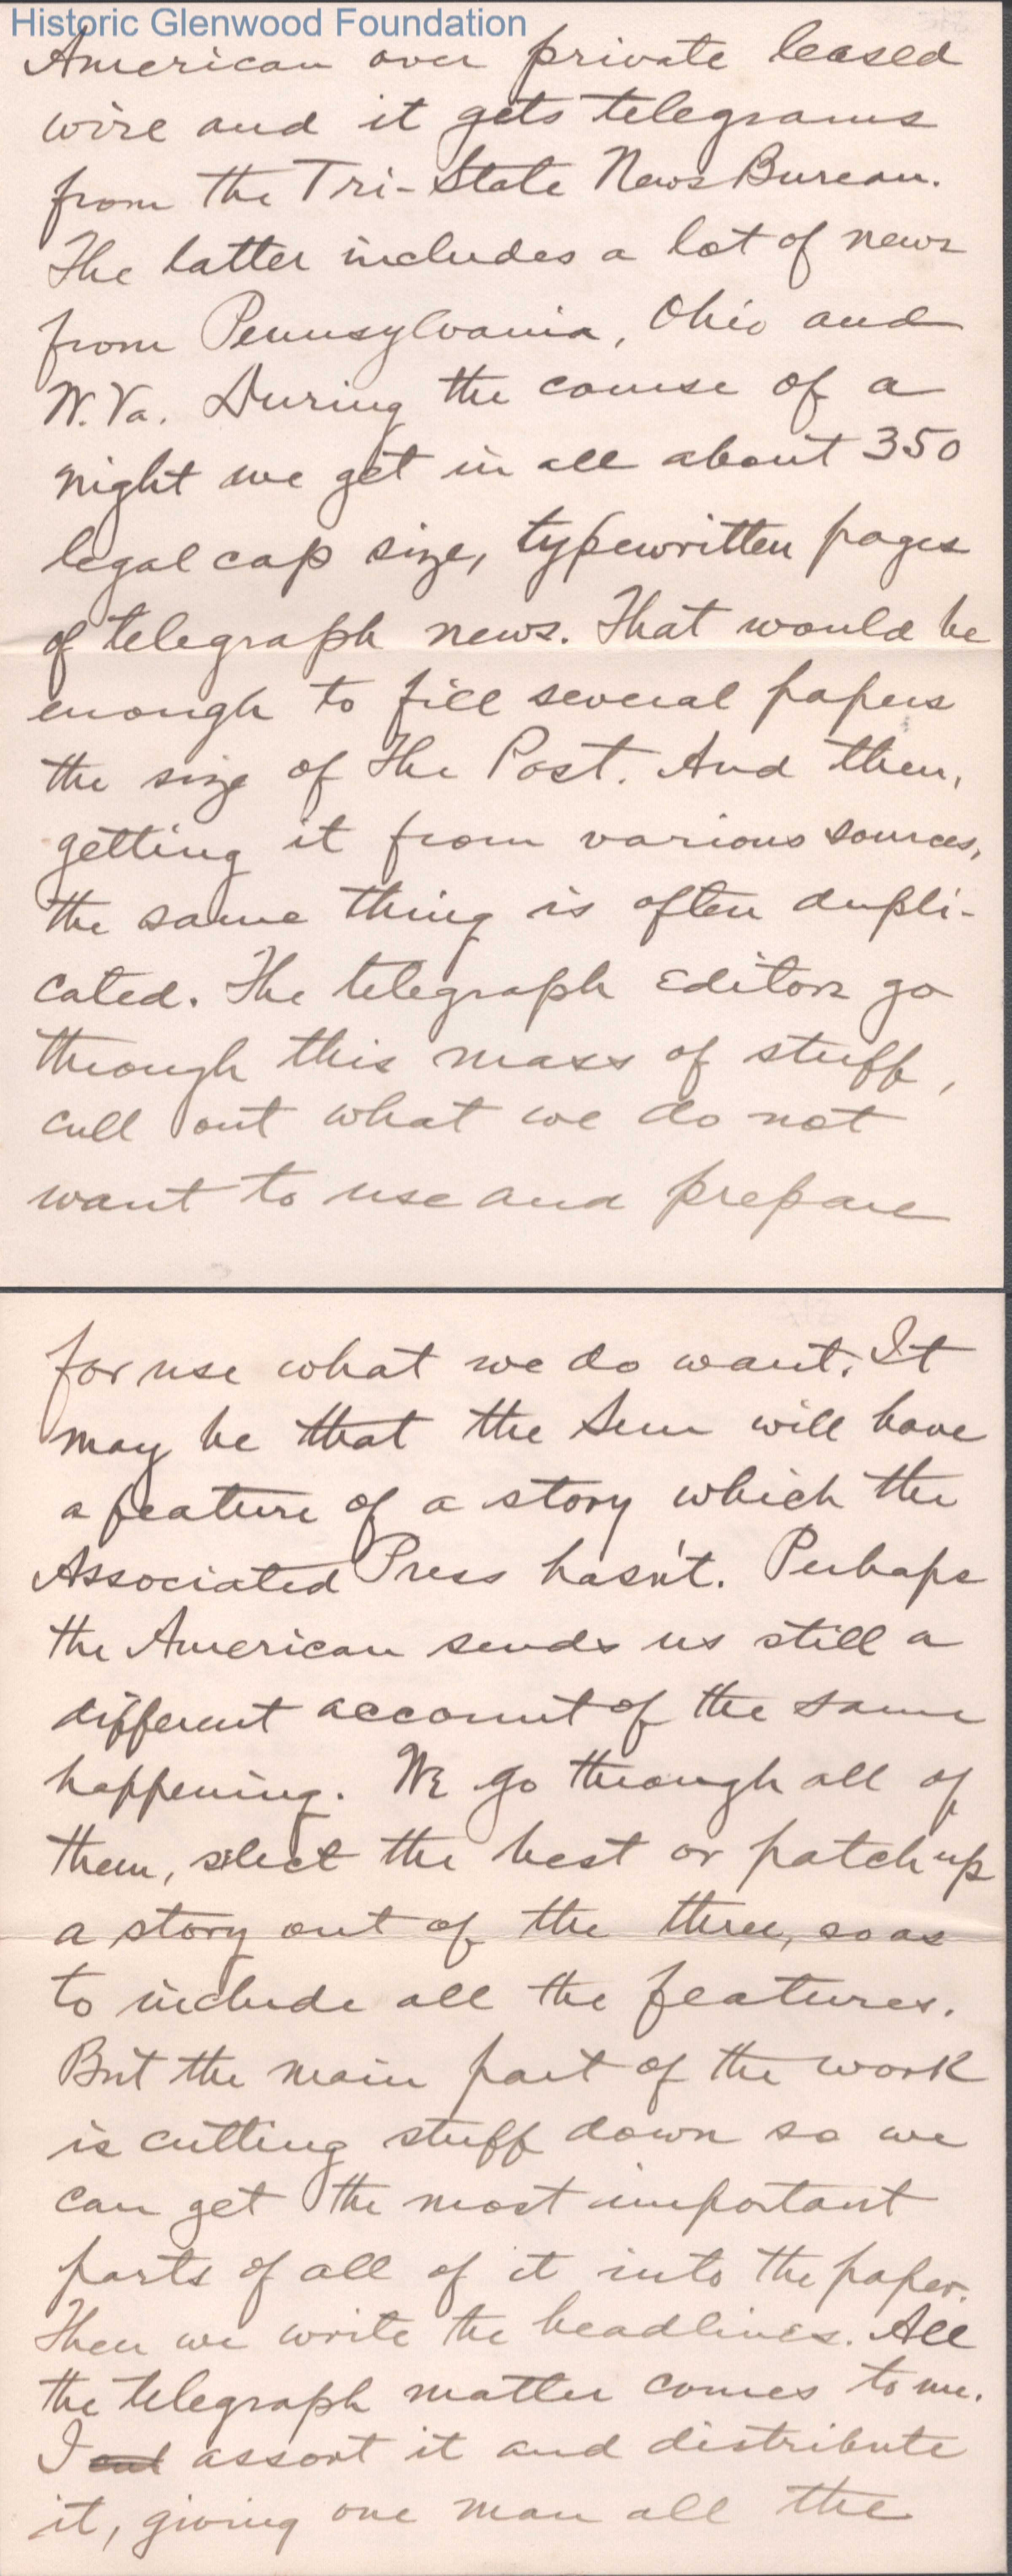 Historic Glenwood Foundation
American over private leased
wire and it gets telegrams
from the Tri-State News Bureau.
The latter includes a lot of news
from Pennsylvania, Ohio and
W. Va. During the course of a
night we get in all about 350
legal cap size, typewritten pages
of telegraph news. That would be
enough to fill several papers
the size of The Post. And then,
getting it from various sources,
the same thing is often dupli-
cated. The telegraph editors go
through this mass of stuff,
cull out what we do not
want to use and prepare
for use what we do want. It
may be that the Sun will have
a feature of a story which the
Associated Press hasn't. Perhaps
the American sends us still a
different account of the same
happening. We go through all of
them, select the best or patch up
a story out of the three, so as
to include all the features.
But the main part of the work
is cutting stuff down so we
can get the most important
parts of all of it into the paper.
Then we write the headlines. All
the telegraph matter comes to me.
I assort it and distribute
it, giving one man all the